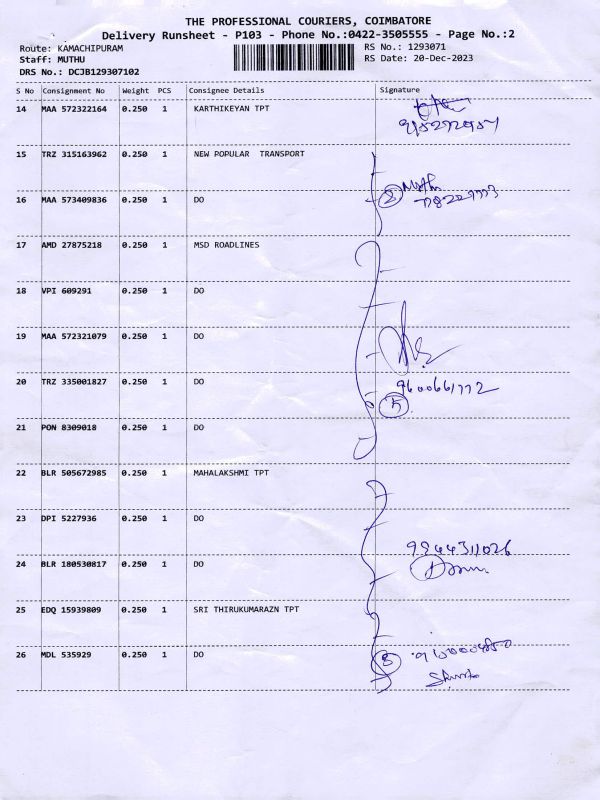 THE PROFESSIONAL COURIERS, COIMBATORE
Delivery Runsheet - P103 - Phone No.:0422-3505555 - Page No.:2
Route: KAMACHIPURAM RS No.: 1293071
Staff: MUTHU RS Date: 20-Dec-2023
DRS No.: DCJB129307102
S No Consignment No Weight PCS Consignee Details Signature
14 MAA 572322164 0.250 1 KARTHIKEYAN TPT
15 TRZ 315163962 0.250 1 NEW POPULAR TRANSPORT
16 MAA 573409836 0.250 1 DO 2
17 AMD 27875218 0.250 1 MSD ROADLINES
18 VPI 609291 0.250 1 DO
19 MAA 572321079 0.250 1 DO
20 TRZ 335001827 0.250 1 DO 9600661772
5
21 PON 8309018 0.250 1 DO
22 BLR 505672985 0.250 1 MAHALAKSHMI TPT
23 DPI 5227936 0.250 1 DO 9944311026
24 BLR 180530817 0.250 1 DO
25 EDQ 15939809 0.250 1 SRI THIRUKUMARAZN TPT
26 MDL 535929 0.250 1 DO